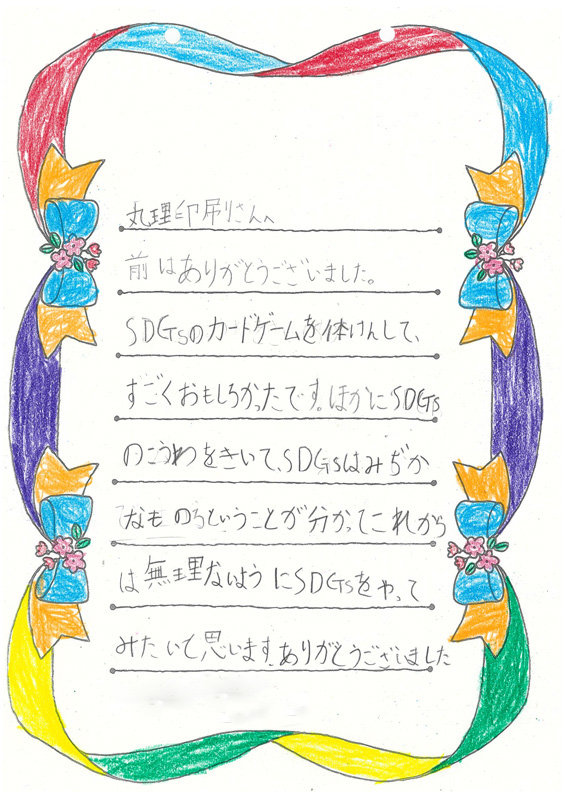 丸理印刷さんへ
前はありがとうございました。
SDGsのカードゲームを体けんして、
すごくおもしろかったです。ほかにSDGs
のこうわをきいて、SDGsはみぢか
なものということが分かってこれから
は無理ないようにSDGsをやって
みたいと思います。ありがとうございました